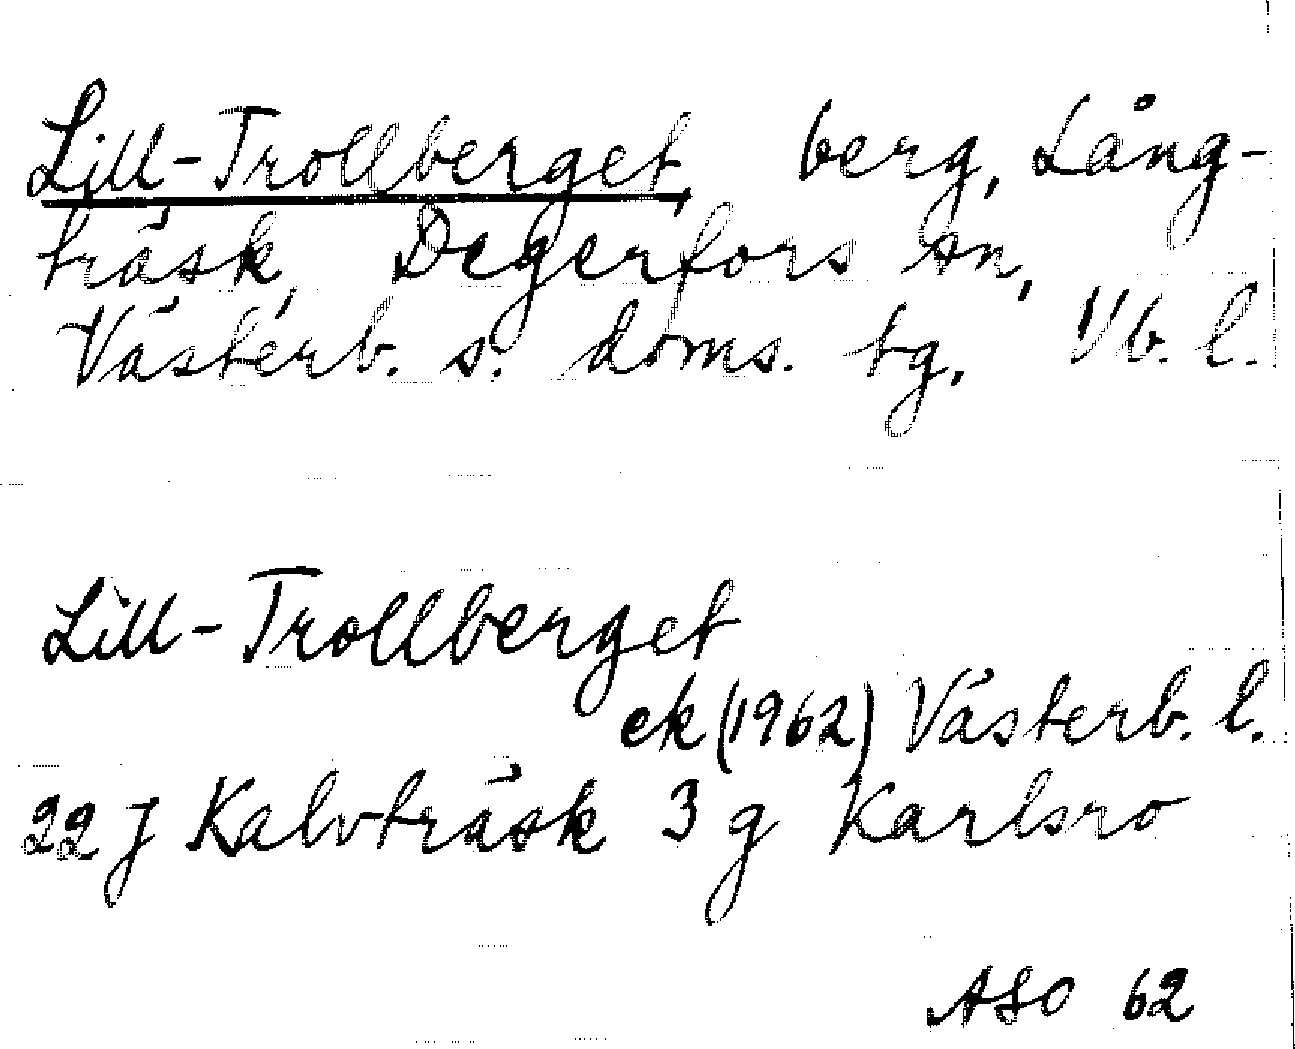 Lill-Trollberget, berg, Lång-
träsk, Degerfors sn,
Västerb. s. doms. tg, Vb. l.
Lill-Trollberget
ek (1962) Västerb. l.
22 J Kalvträsk 3 g Karlsro
ASO 62